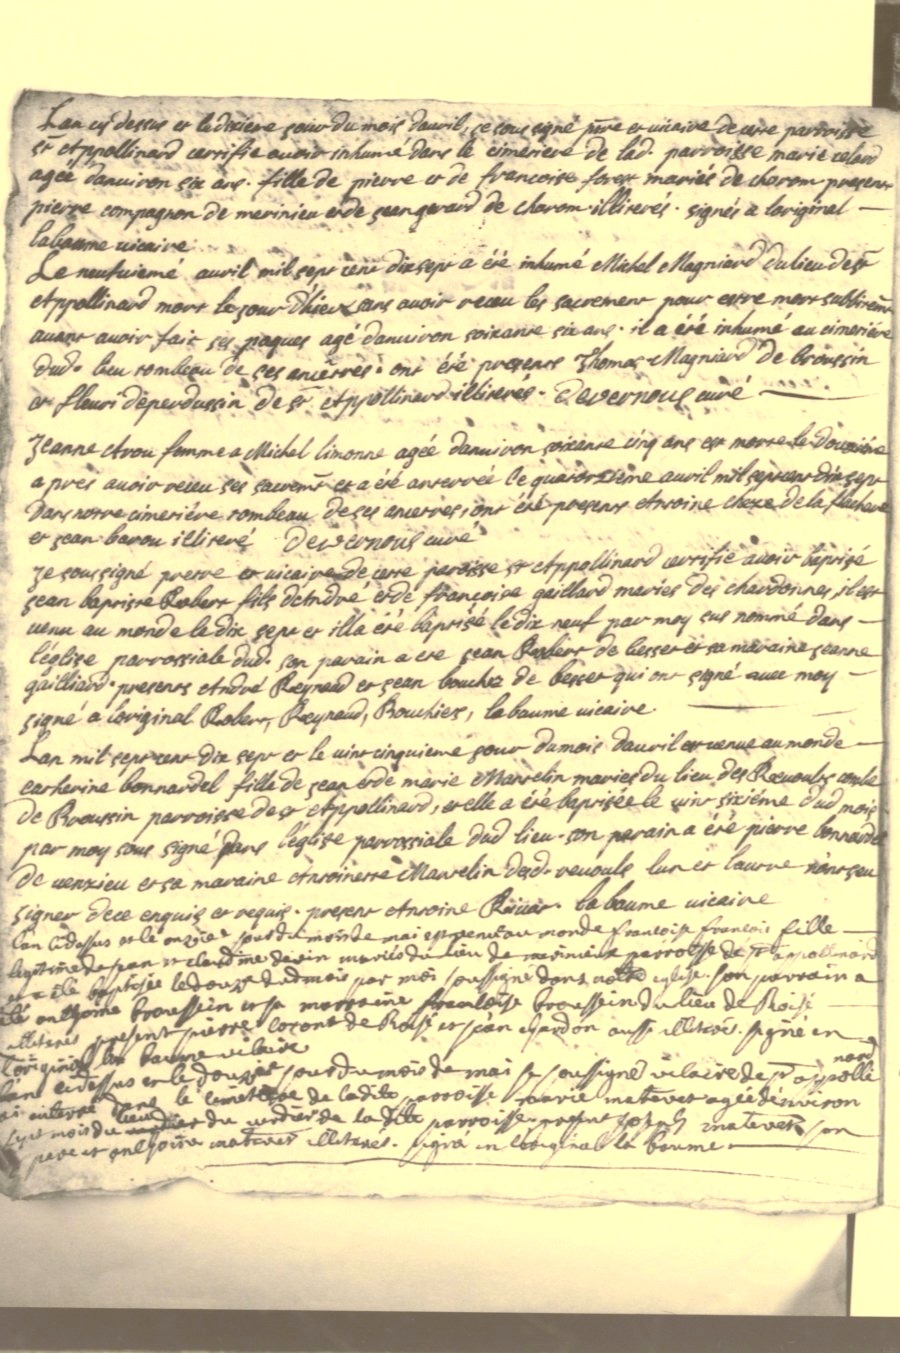 Lan cy dessus et le dixieme jour du mois davril, je sous signé ptre et vicaire de cette parroisse
St Appollinard certifie avoir inhumé dans le cimetiere de lad. parroisse marie celard
agée danviron six ans. fille de pierre et de francoise forest mariés de charom presents
pierre compagnon de merinieu et de jean gerard de charom. illiterés. signés a loriginal
labaume vicaire
Le neufviemé avril mil sept cent dix sept a été inhumé Michel Magniard du lieu de St
Appollinard mort le jour dhier sans avoir receu les sacrement pour estre mort subitemt
avant avoir fait ses paques agé danviron soixante six ans. il a été inhumé au cimetiére
dud. lieu tombeau de ses ancetres. ont été presents Thomas Magniard de broussin
et fleuri deperdussin de St Appollinard illiterés. Devernous curé
Jeanne Avou femme a Michel limonne agée danviron soixante cinq ans est morte le douziéme
apres avoir receu ses sacremts et a été anterrée le quatorzième avril mil sept cent dix sept
dans notre cimetiére tombeau de ses ancetres, ont été presents Antoine cheze de la flachere
et jean barou illiteré Devernous curé
Je soussigné pretre et vicaire de cette paroisse St Appollinard certifie avoir baptisé
jean baptiste Robert fils de André et de françoise gaillard mariés des chardonnes, il est
venu au monde le dix sept et illa été baptisé le dix neuf par moy sus nommé dans
l'église parrossiale dud. son parain a ete jean Robert de besset et sa maraine jeanne
gailliard. presents André Reynaud et jean bouchez de besset qui ont signé avec moy
signé a loriginal Robert, Reynaud, Bouchiez, labaume vicaire.
Lan mil sept cent dix sept et le vint cinquieme jour du mois davril est venue au monde
catherine bonnardel fille de jean et de marie Marcelin mariés du lieu des Revouls
de Broussin parroisse de St Appollinard, et elle a été baptisée le vint sixiéme dud mois
par moy sous signé dans l'église parrossiale dud lieu. son parain a été pierre bonnardel
de venzieu et sa maraine Antoinette Marcelin desd. revouls lun et lautre nont sceu
signer de ce enquis et requis. present Antoine Rivat. labaume vicaire
lan cÿ dessus et le onzie jour du mois de mai est venu au monde françoise françois fille
legitime de jean et claudine devin mariés du lieu de merinieux parroisse de St appollinard
et a été baptisée le douze dud mois par moi soussigné dans notre eglise. son parrain a
été anthoine broussein et sa marraine francoise broussein du lieu de Roisé
illiteres present pierre de Roisé et jean chardon aussi illiterés. signé en
loriginal la baume vicaire
lan cidessus et le douze jour du mois de mai je soussigné vicaire de St appolli
nard
ai enterré dans le cimetiere de ladite parroisse marie matevet agée denviron
sept mois du lieu du verdier de la dite parroisse. present joseph matevet son
pere et anthoine matevet illiteres. signé en loriginal la baume